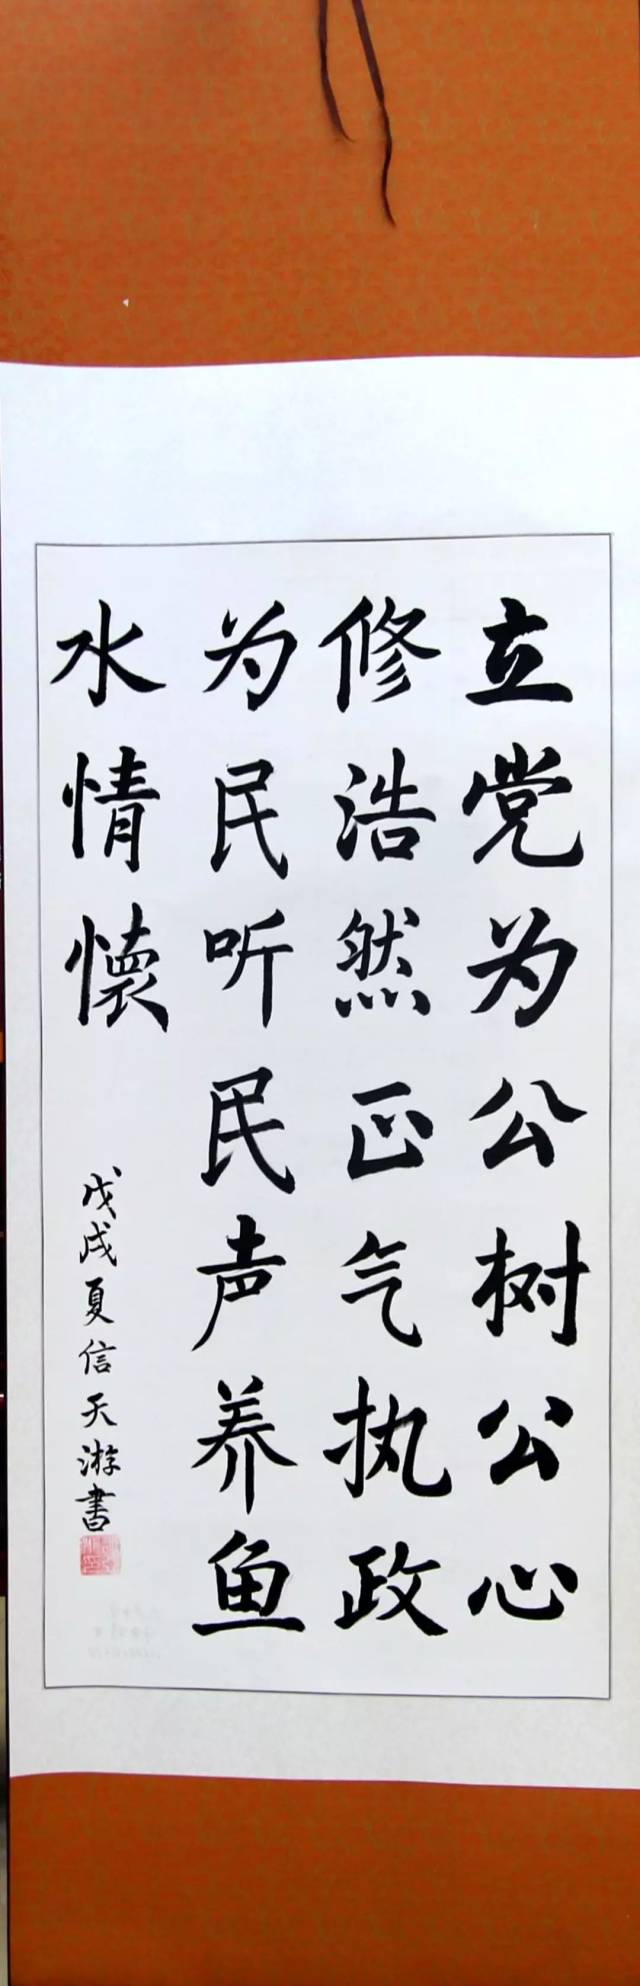 立党为公树公心
修浩然正气执政
为民听民声养鱼
水情懷
戊戌夏信天游書